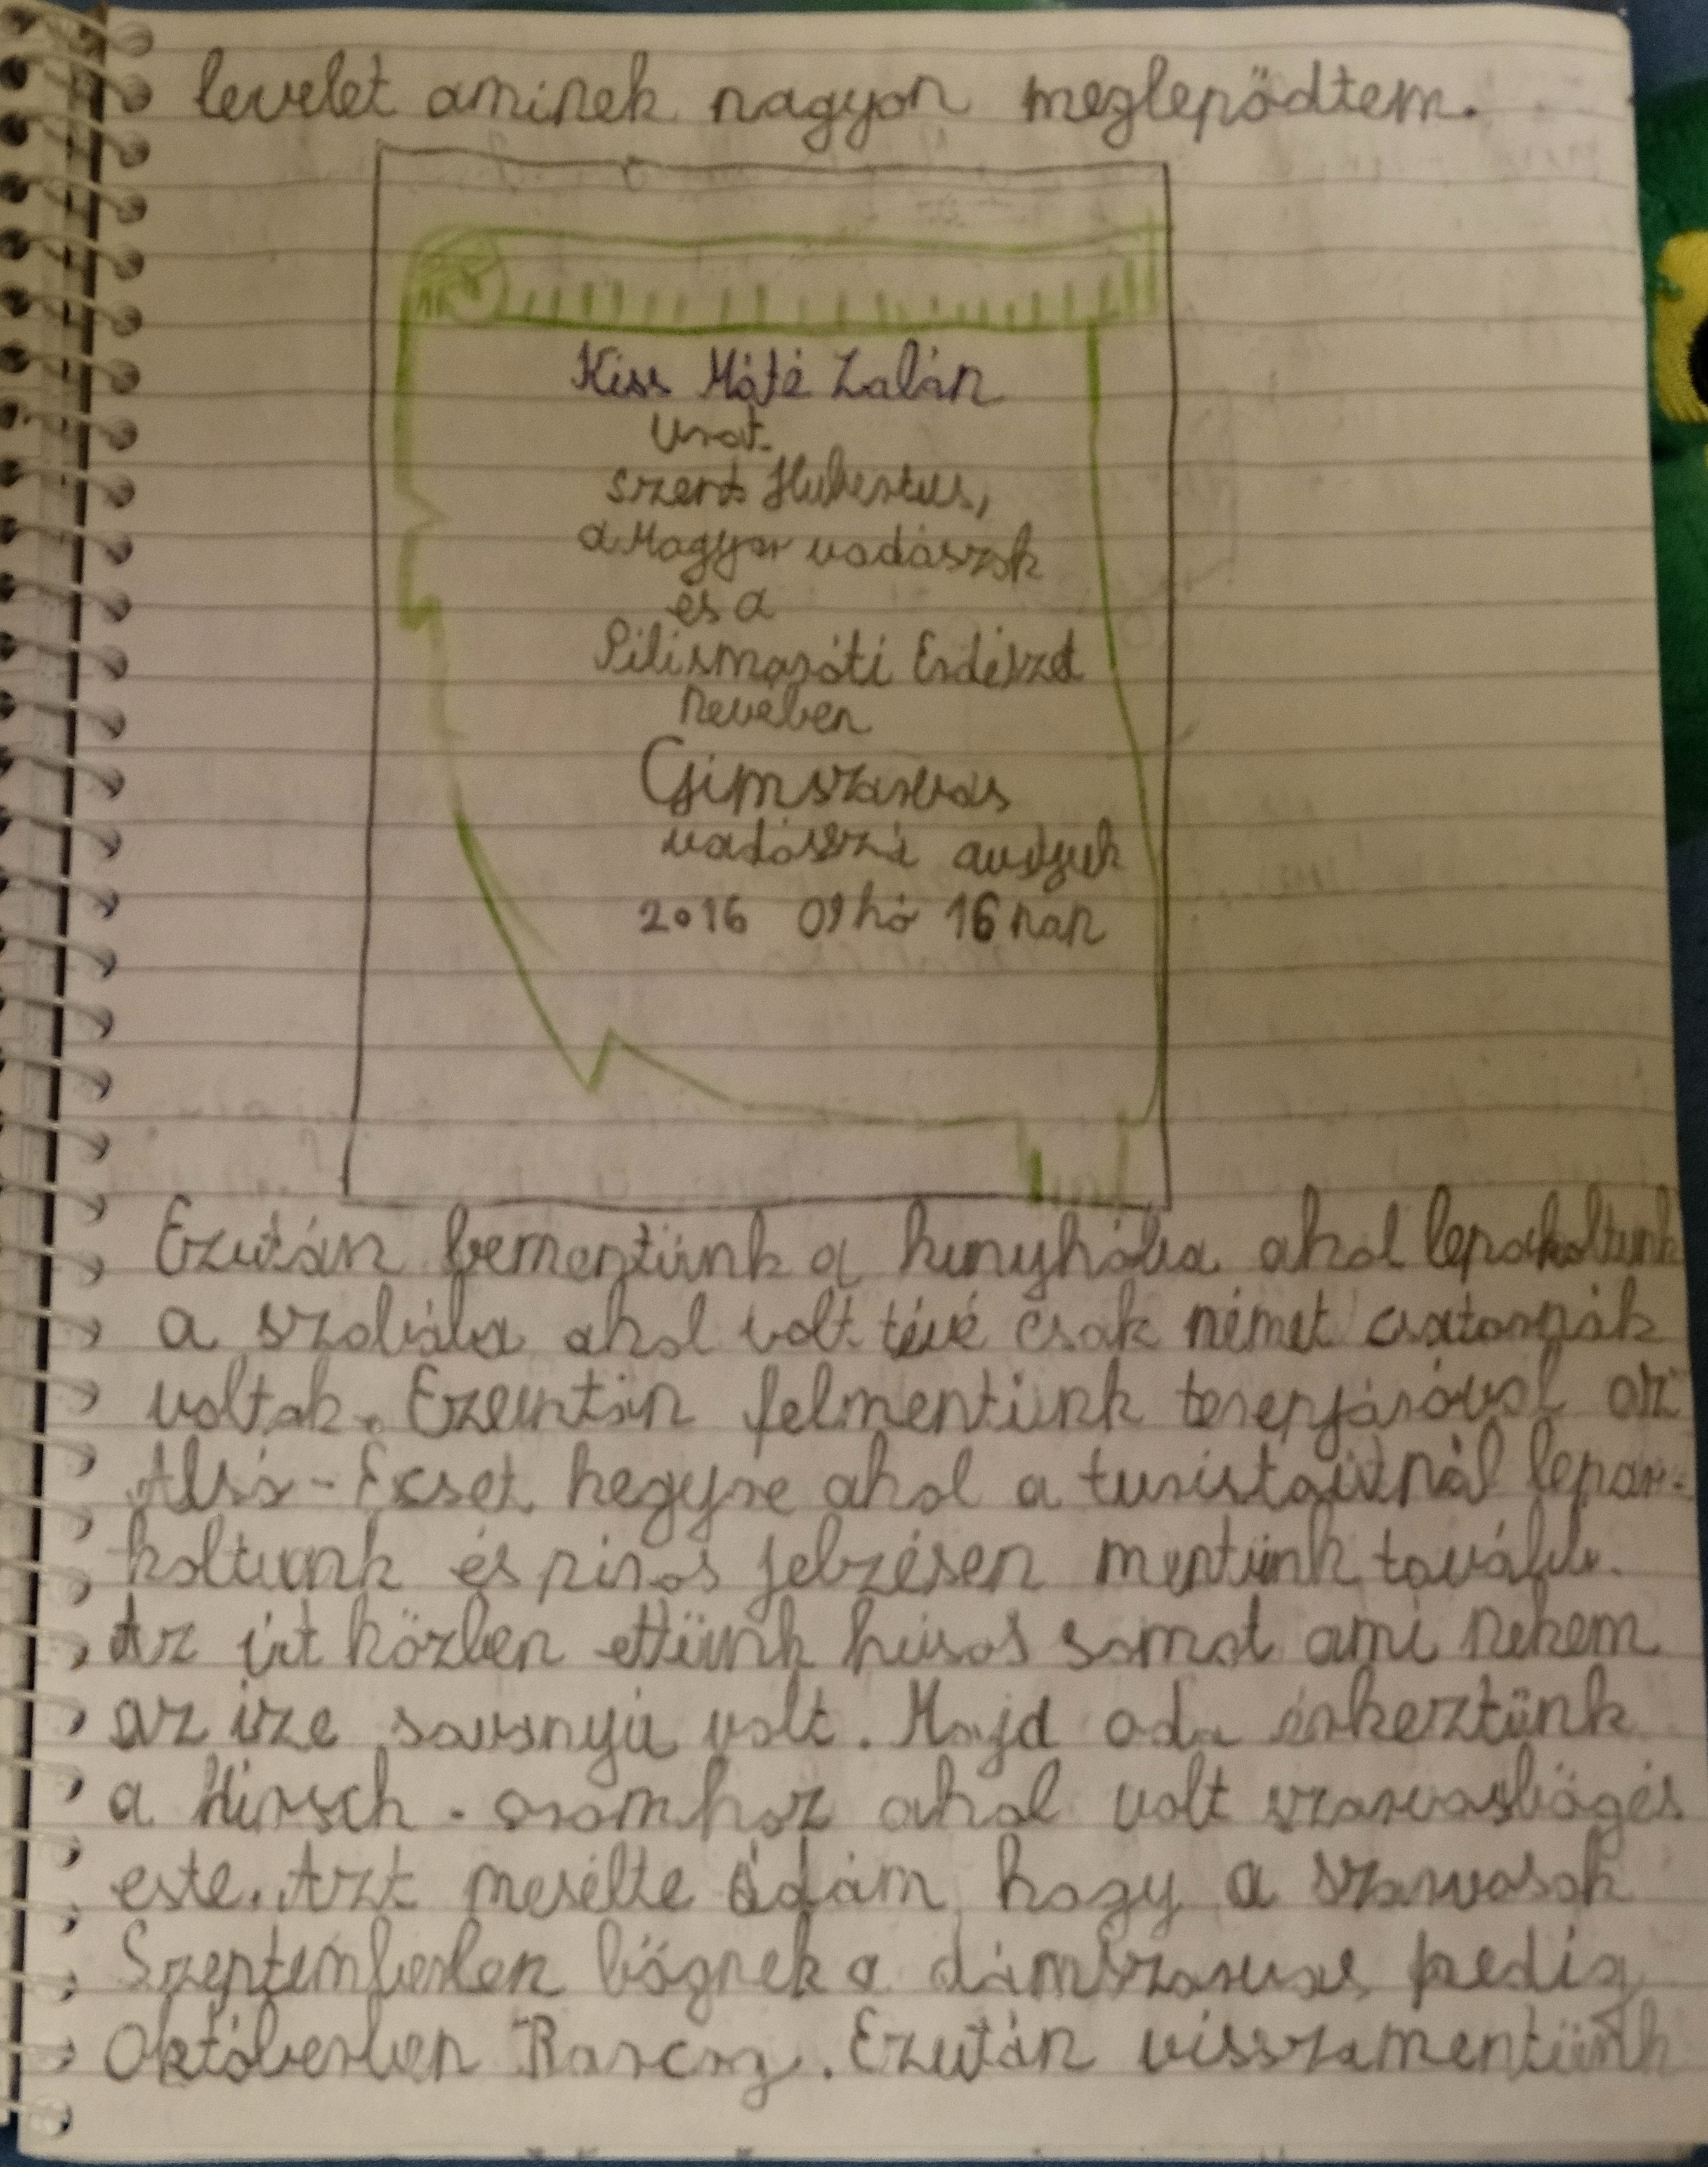 levelet aminek nagyon meglepődtem.
Kiss Máté Zalán
Urat
szent Hubertus,
a Magyar vadászok
és a
Pilismaróti Erdészet
nevében
Gímszarvas
vadásszá avatjuk
2016 09 hó 16 nán
Ezután bementünk a kunyhóba ahol lepakoltunk
a szobába ahol volt tévé csak német csatornák
voltak. Ezeután felmentünk terepjáróval az
Alsó-Ecset hegyre ahol a turistaútnál lepar-
koltunk és piros jelzésen mentünk tovább.
Az út közben ettünk húsos somot ami nekem
az íze savanyú volt. Majd oda érkeztünk
a Hirsch-oromhoz ahol volt szarvasbőgés
este. Azt mesélte Ádám hogy a szarvasok
Szeptemberben bőgnek a dámszarvas pedig
Októberben Barcog. Ezután visszamentünk